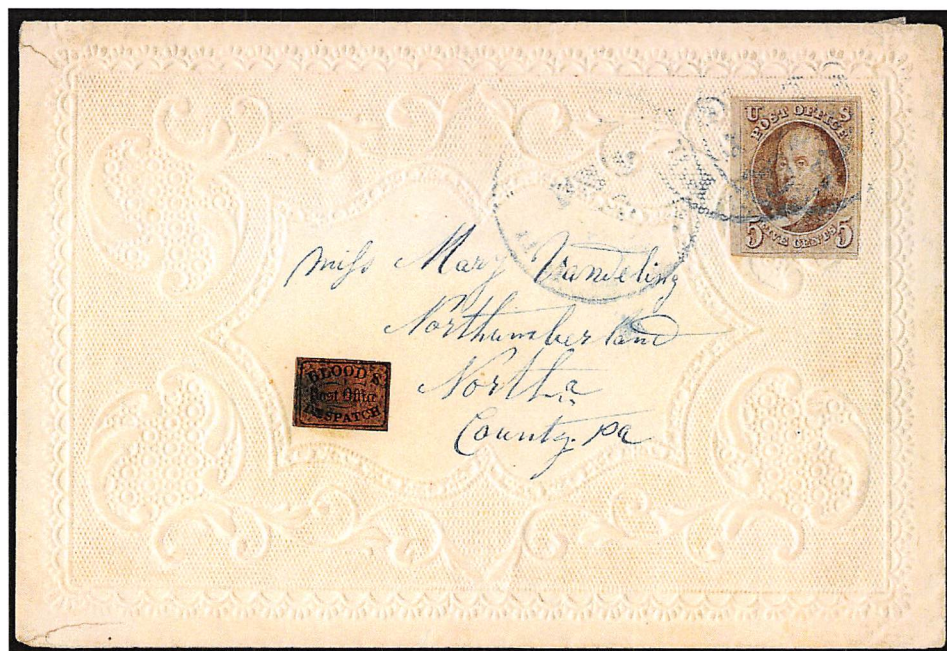 U S
POST OFFICE
5 FIVE CENTS 5
Miss Mary Vandeling
Northumberland
North a
County Pa
BLOOD'S
Post Office
DESPATCH